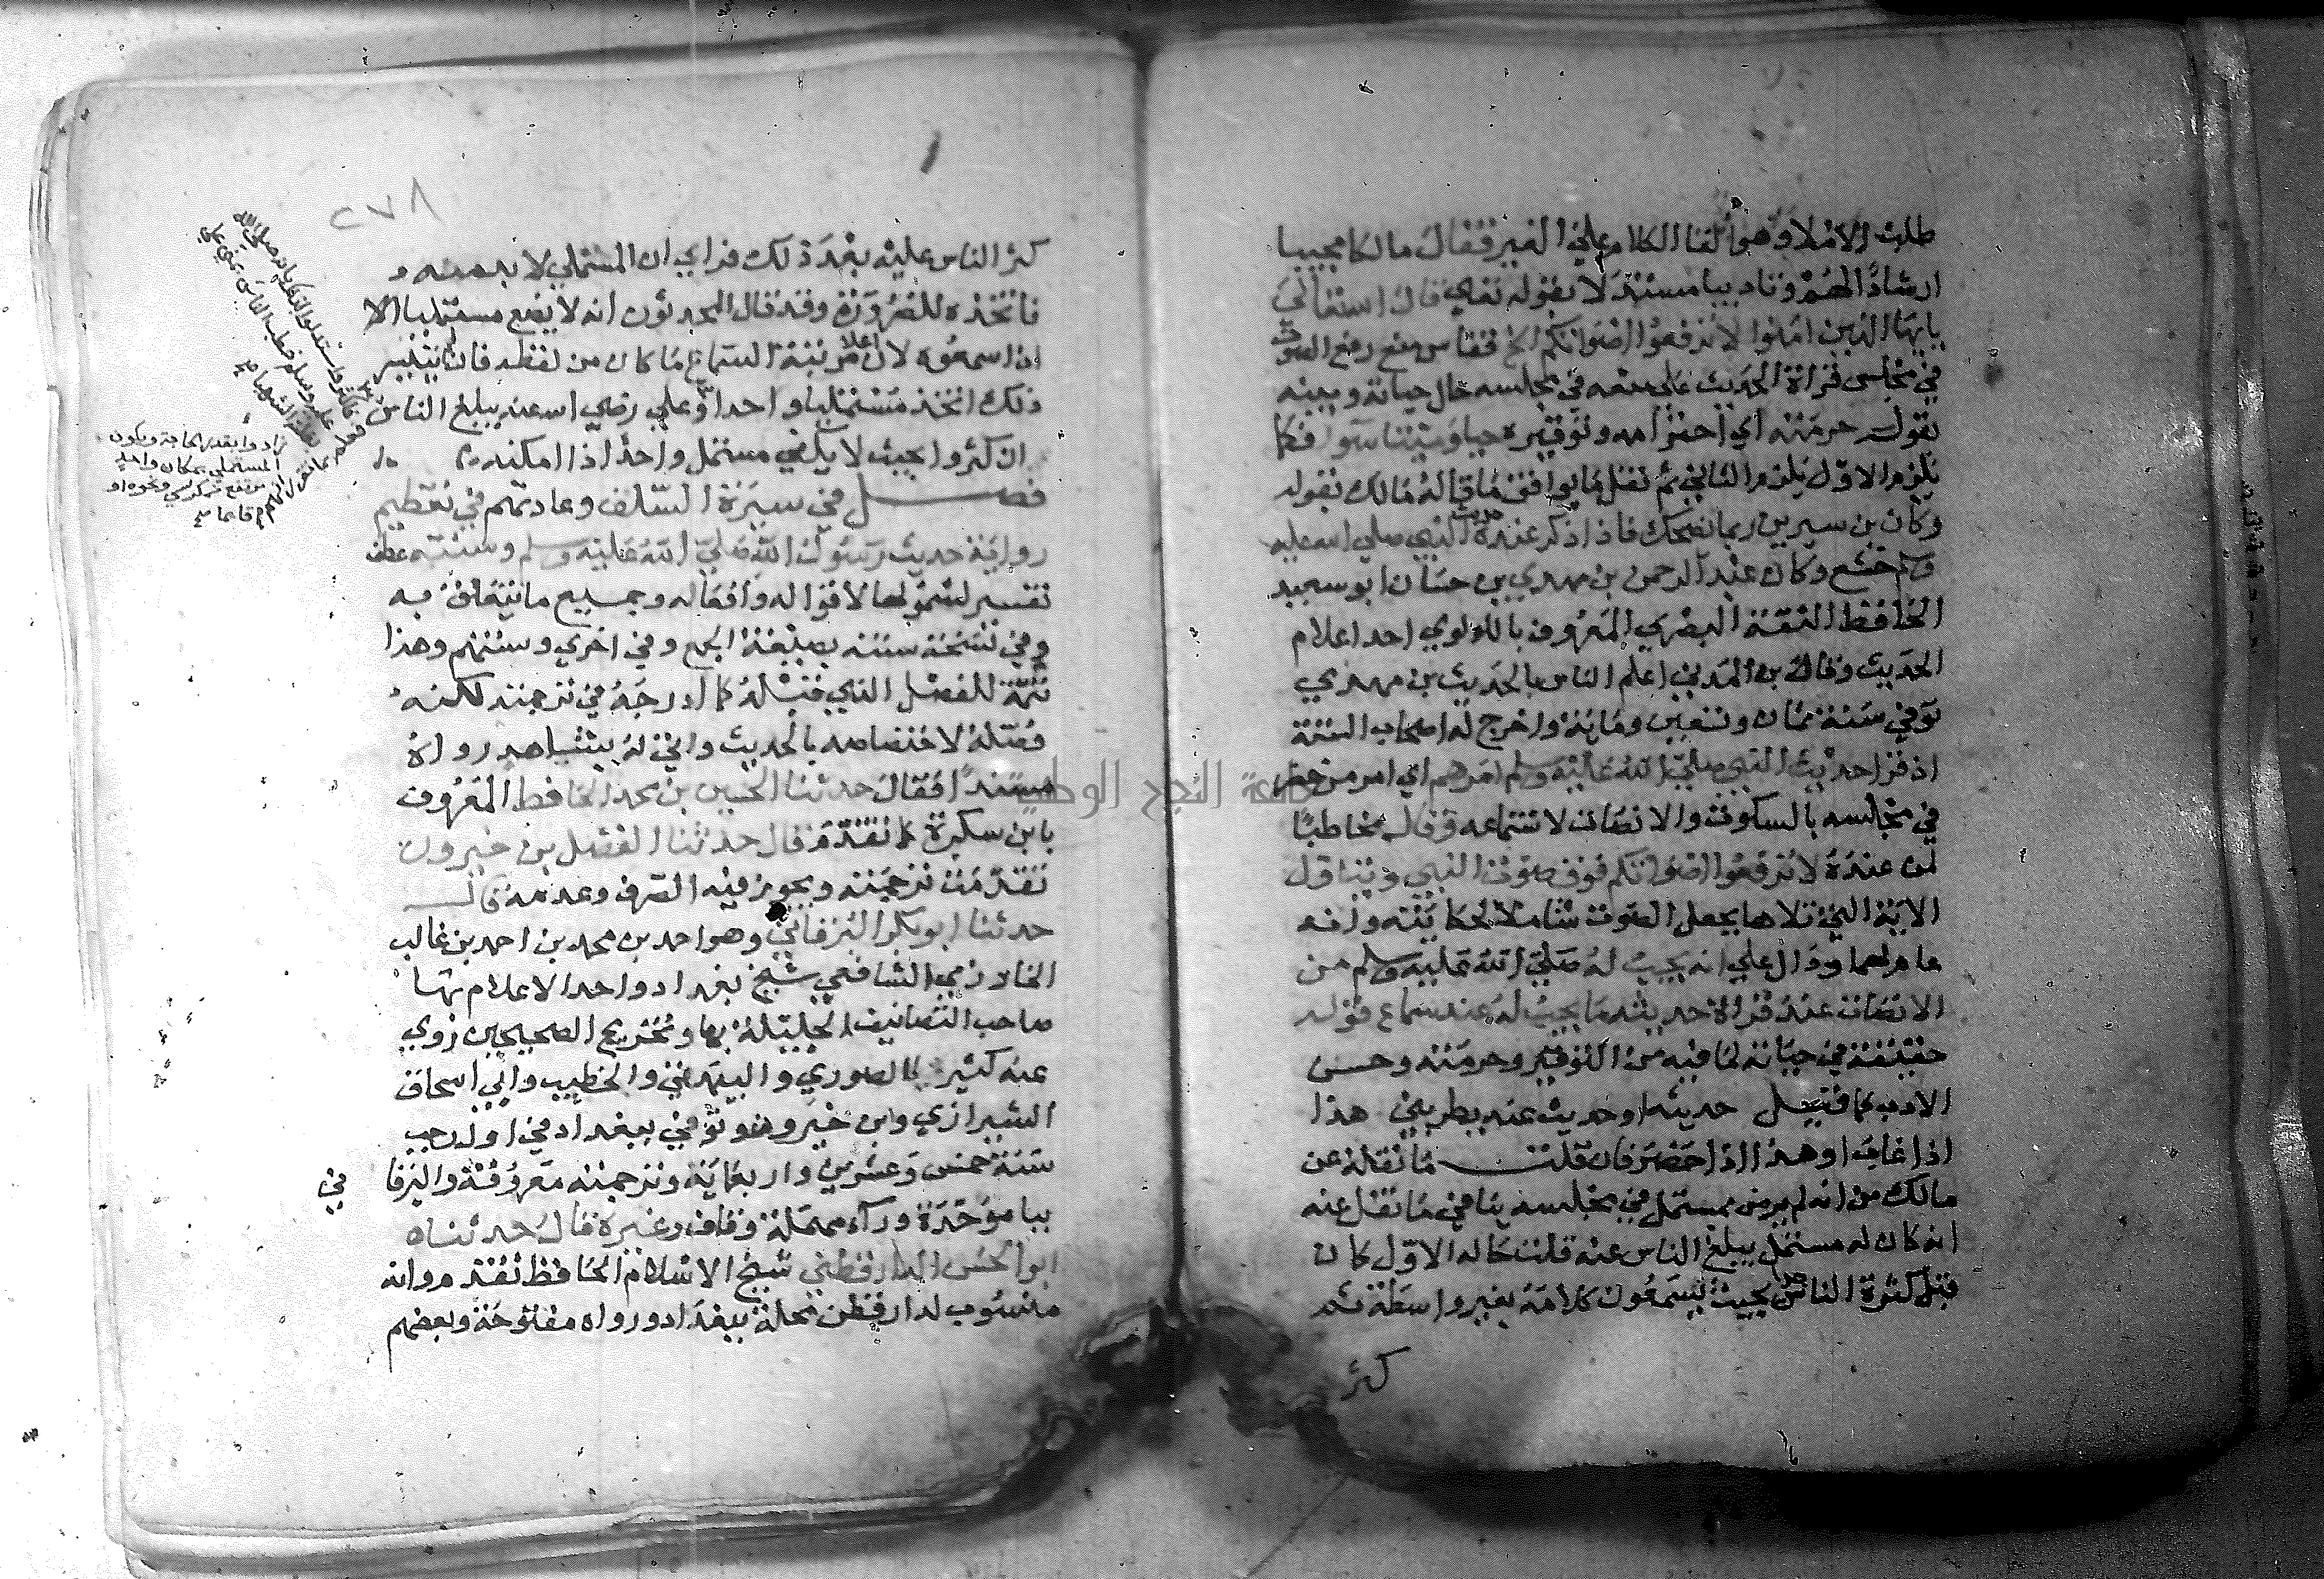 طلب الاملا وهو القا الكلام علي الغير فقال مالك مجيبا
ارشادا لهم وتاديبا مستدلا بقوله تعالي قال الله تعالي
يايها الذين امنوا لا ترفعوا اصواتكم الخ فقاس منع رفع الصوت
في مجلس قراة الحديث علي منعه في مجلسه حال حياته وبينه
بقوله حرمته اي احترامه وتوقيره حيا وميتا سوا فكما
يلزم الاول يلزم الثاني ثم نقل ما يوافق ما قاله مالك بقوله
وكان بن سيرين ربما يضحك فاذا ذكر عنده حديث النبي صلي الله عليه
وسلم خشع وكان عبد الرحمن بن مهدي بن حسان ابو سعيد
الحافظ الثقة البصري المعروف باللولوي احد اعلام
الحديث وقال بن المديني اعلم الناس بالحديث بن مهدي
توفي سنة ثمان وتسعين وماية واخرج له اصحاب الستة
اذا قرا حديث النبي صلي الله عليه وسلم امرهم اي امر من حضر
في مجلسه بالسكوت والانصات لاستماعه وقال مخاطبا
لمن عنده لا ترفعوا اصواتكم فوق صوت النبي ويتاول
الاية التي تلاها بجعل الصوت شاملا لحكايته وانه
عام لهما ودال علي انه يجب له صلي الله عليه وسلم من
الانصات عند قراة حديثه ما يجب له عند سماع قوله
حقيقة في حياته لما فيه من التوقير وحرمته وحسن
الادب كما قيل حديثه او حديث عنه يطربني هذا
اذا غاب او هذا اذا حضر فان قلت ما نقله عن
مالك من انه لم يرض بمستمل في مجلسه ينافي ما نقل عنه
انه كان له مستمل يبلغ الناس عنه قلت حاله الاول كان
قبل كثرة الناس بحيث يسمعون كلامه بغير واسطة ثم
كثر
٢٧٨
كثر الناس عليه بعد ذلك فراي ان المستملي لا بد منه و
فاتخذه للضرورة وقد قال المحدثون انه لا يضع مستمليا الا
ان اسمعوه لان اعلا مرتبة السماع ما كان من لفظه فان تيسر
ذلك اتخذ مستمليا واحدا وعلي رضي الله عنه يبلغ الناس
ان كثروا بحيث لا يكفي مستمل واحد اذا امكنه
فصل في سيرة السلف وعادتهم في تعظيم
رواية حديث رسول الله صلي الله عليه وسلم وسنته عطف
تفسير لشمولها لاقواله وافعاله وجميع ما يتعلق به
وفي نسخة سننه بصيغة الجمع وفي اخري وسنتهم وهذا
تتمة للفصل الذي قبله كما ادرجه في ترجمته لكنه
فصله لاختصاصه بالحديث واتي له بشاهد رواه
مسندا فقال حدثنا الحسين بن محمد الحافظ المعروف
بابن سكرة كما تقدم قال حدثنا الفضل بن خيرون
تقدمت ترجمته ويجوز فيه الصرف وعدمه قال
حدثنا ابو بكر البرقاني وهو احمد بن محمد بن احمد بن غالب
الخلازمي الشافعي شيخ بغداد واحد الاعلام بها
صاحب التصانيف الجليلة بها وتخريج الصحيحين روي
عنه كثير كالصوري والبيهقي والخطيب وابي اسحاق
الشيرازي وابن خيرون توفي ببغداد في اول رجب
سنة خمس وعشرين واربعماية وترجمته معروفة والبرقا
في
ببا موحدة وراء مهملة وقاف وغيره قال حدثناه
ابو الحسن الدارقطني شيخ الاسلام الحافظ تقدم وانه
منسوب لدار قطن محلة ببغداد ورواه مفتوحة وبعضهم
زاد وا بقدر الحاجة ويكون
المستملي بمكان واحد
مرتفع ككرسي ونحوه او
قايما
جامعة النجاح الوطنية